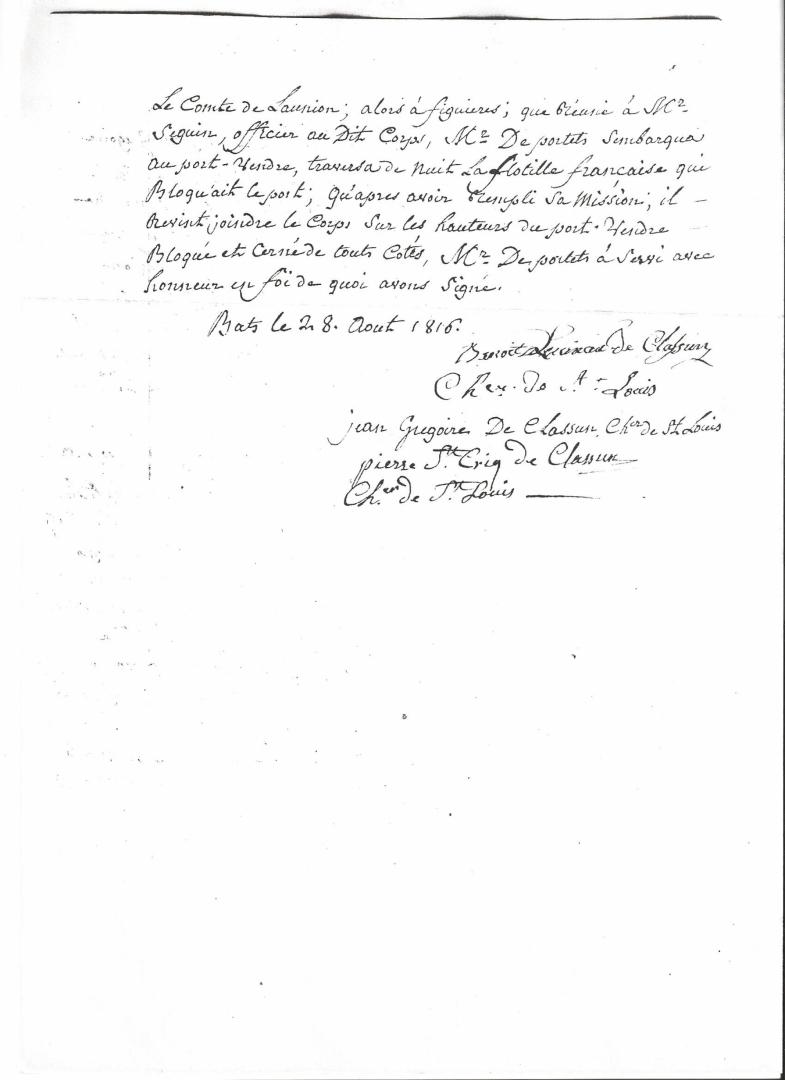 Le Comte de Launion; alors à figuieres; que Réunie à Mr
Seguin, officier au Dit Corps, Mr De portets Sembarqua
au port-Vendre, traversa de nuit La flotille française qui
Bloqu'ait le port; Qu'apres avoir Rempli Sa Mission; il –
Revint joindre le Corps Sur les hauteurs du port-Vendre
Bloquée et Cerné de touts Cotés, Mr De portets à Servi avec
honneur en foi de quoi avons Signé.
Bats le 28. Aout 1816.
Benoit de Classun
Cher. de St Louis
jean Gregoire De Classun, Cher de St Louis
pierre St Criq de Classun
Ch.er de St Louis